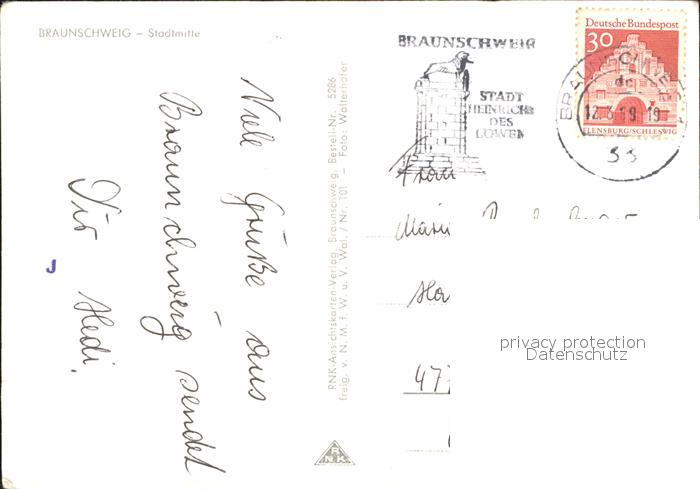 BRAUNSCHWEIG – Stadtmitte
Viele Grüße aus
Braunschweig sendet
Dir Hedi.
RNK-Ansichtskarten-Verlag, Braunschweig, Bestell-Nr. 5286
freig. v. N. M. f. W. u. V. Wal. / Nr. 101 — Foto: Walterhöfer
RNK
BRAUNSCHWEIG
STADT
HEINRICHS
DES
LÖWEN
Deutsche Bundespost
30
FLENSBURG/SCHLESWIG
BRAUNSCHWEIG
dc
33
Frau
477
privacy protection
Datenschutz